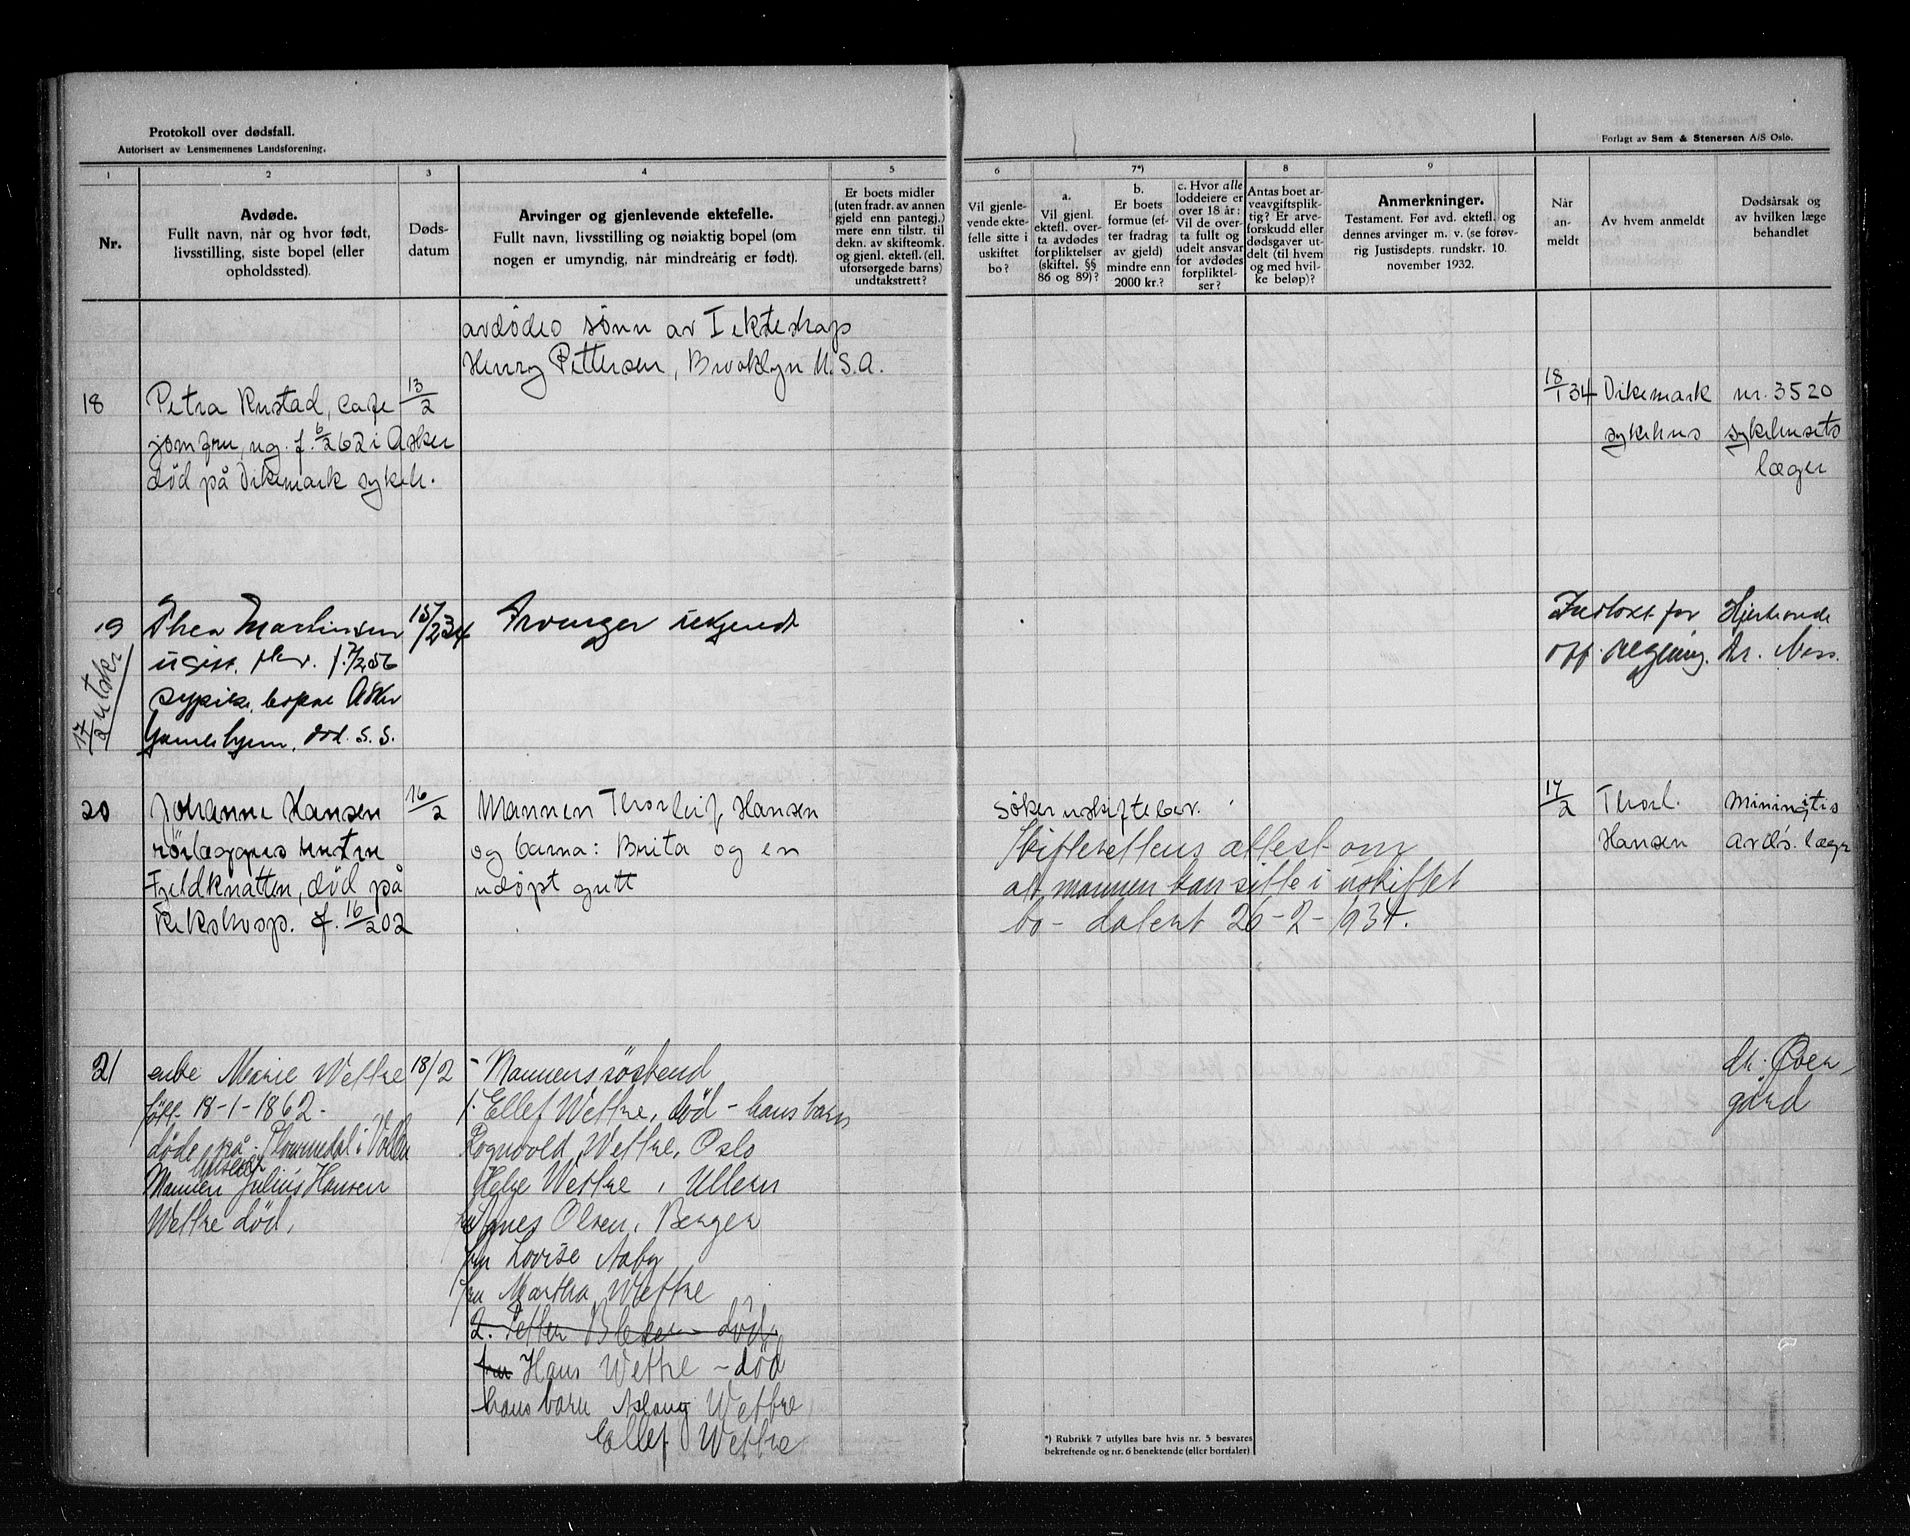 Protokoll over dødsfall.
Autorisert av Lensmennenes Landsforening.
Forlagt av Sem & Stenersen A/S Oslo.
1 2 3 4 5 6 7*) 8 9
Nr.
Avdøde.
Fullt navn, når og hvor født,
livsstilling, siste bopel (eller
opholdssted).
Døds-
datum
Arvinger og gjenlevende ektefelle.
Fullt navn, livsstilling og nøiaktig bopel (om
nogen er umyndig, når mindreårig er født).
Er boets midler
(uten fradr. av annen
gjeld enn pantegj.)
mere enn tilstr. til
dekn. av skifteomk.
og gjenl. ektefl. (ell.
uforsørgede barns)
undtakstrett?
Vil gjenle-
vende ekte-
felle sitte i
uskiftet
bo?
a.
Vil gjenl.
ektefl. over-
ta avdødes
forpliktelser
(skiftel. §§
86 og 89)?
b.
Er boets
formue (ef-
ter fradrag
av gjeld)
mindre enn
2000 kr.?
c. Hvor alle
loddeiere er
over 18 år:
Vil de over-
ta fullt og
udelt ansvar
for avdødes
forpliktel-
ser?
Antas boet ar-
veavgiftsplik-
tig? Er arve-
forskudd eller
dødsgaver ut-
delt (til hvem
og med hvil-
ke beløp)?
Anmerkninger.
Testament. Før avd. ektefl. og
dennes arvinger m. v. (se forøv-
rig Justisdepts. rundskr. 10.
november 1932.
Når
an-
meldt
Av hvem anmeldt
Dødsårsak og
av hvilken læge
behandlet
avdødes sønn av I ekteskap
Henry Pettersen, Brooklyn U.S.A.
18 Petra Rustad, cafe 13/2
jomfru, ug. f. 6/2 62 i Asker
død på Dikemark sykeh.
18/1 34 Dikemark nr. 3520
sykehus sykehusets
læger
19 Thea Martinsen 15/2 34 Arvinger ukjendt
ugift, f. 7/2 56
bopel Asker
Gamlehjem, død s. s.
17/2 utskr
Innlovt for
off
dr. Ness.
20 Johanne Hansen 16/2 Mannen Thorleif Hansen
rørlæggers hustru og barna: Brita og en
Fjeldknatten, død på udøpt gutt
Rikshosp. f. 16/2 02
søker uskiftebev.
Skifterettens attest om
at mannen kan sitte i uskiftet
bo - datert 26-2-1934.
17/2 Thorl. Miningitis
Hansen avd's. læge
21 enke Marie Wettre 18/2 - Mannens søskend
født 18-1-1862. 1. Ellef Wettre, død - hans barn
døde på Plommedal i Vollen Ragnvold Wettre, Oslo
Mannen Julius Hansen Helge Wettre, Ullern
Wettre død. Agnes Olsen, Berger
fru Lovise Aaby
fru Martha Wettre
2. Petter død
fru Hans Wettre - død
hans barn Aslaug Wettre
Ellef Wettre
dr. Øver-
gård
*) Rubrikk 7 utfylles bare hvis nr. 5 besvares
bekreftende og nr. 6 benektende (eller bortfaler)